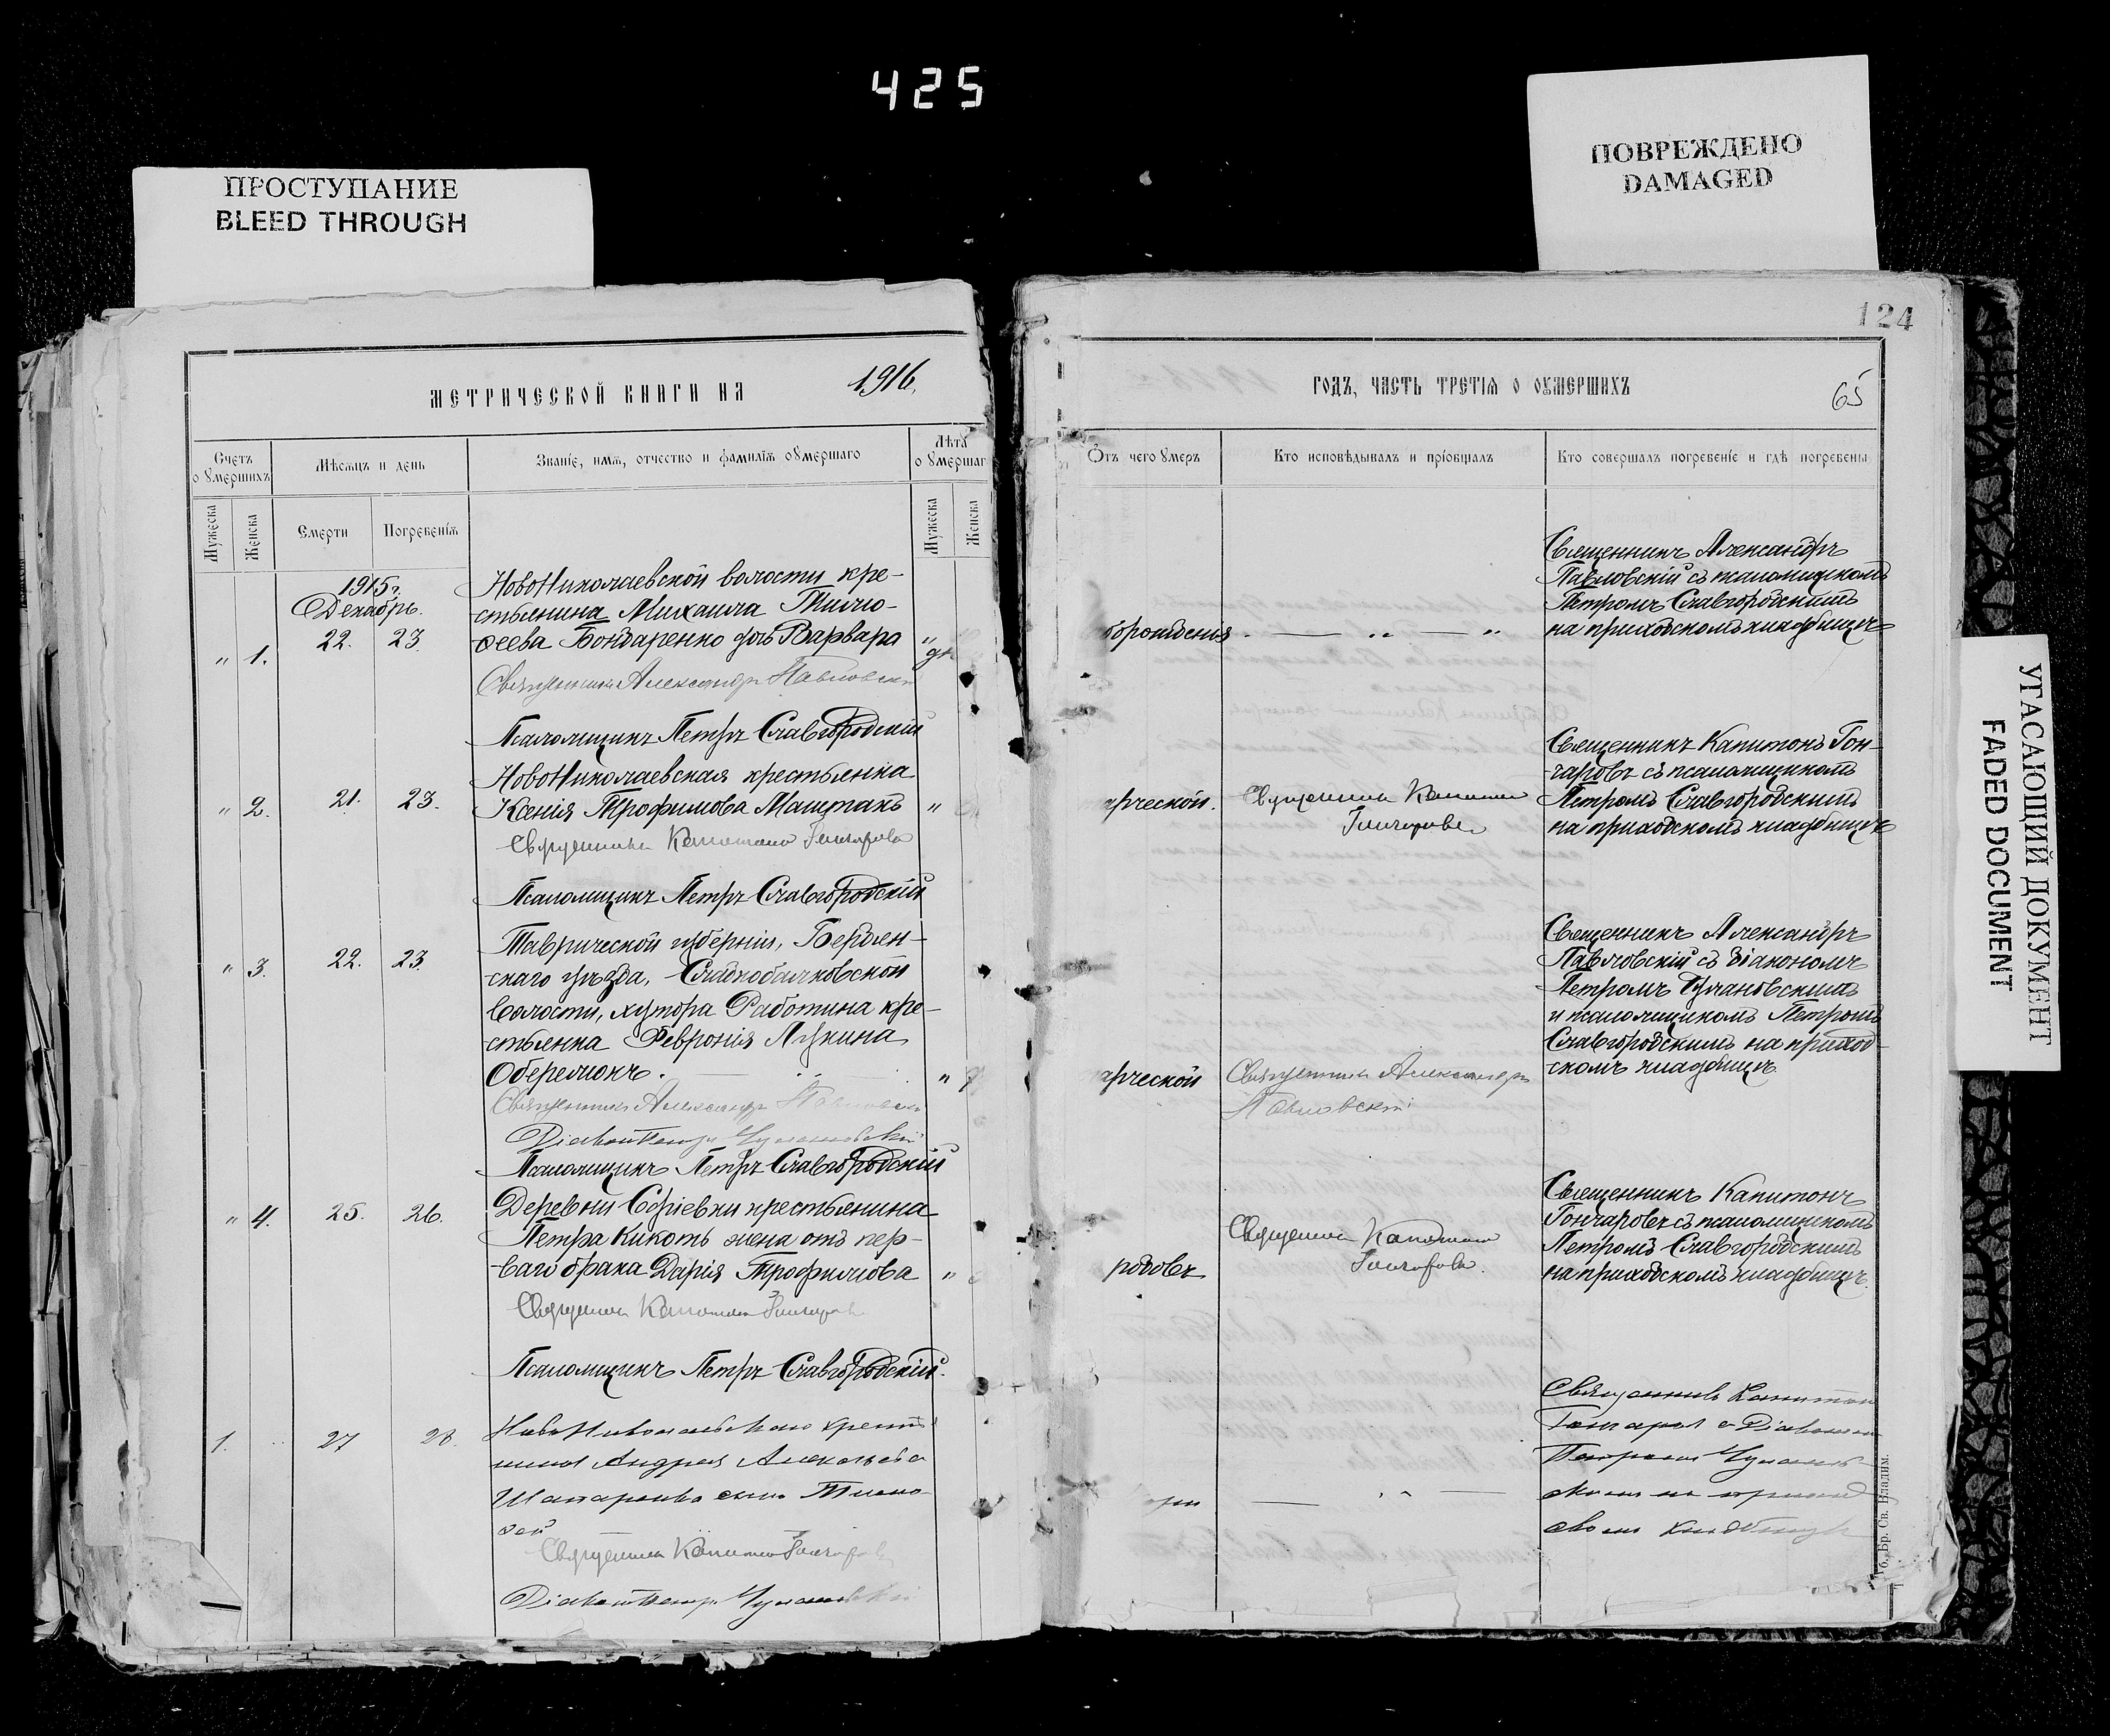 425
ПРОСТУПАНИЕ
BLEED THROUGH
ПОВРЕЖДЕНО
DAMAGED
УГАСАЮЩИЙ ДОКУМЕНТ
FADED DOCUMENT
124
МЕТРИЧЕСКОЙ КНИГИ НА 1916
Счетъ оумершихъ
Мѣсяцъ и день
Званіе, имя, отчество и фамилія оумершаго
Лѣта оумершаг
Мужеска
Женска
Смерти
Погребенія
Мужеска
Женска
1915 г.
Декабрь.
„ 1. 22. 23.
НовоНиколаевской волости кре-
стьянина Михаила Тимо-
ѳеева Бондаренко дочь Варвара „
Священникъ Александръ Павловскі
Псаломщикъ Петръ Славгородскій
„ 2. 21. 23.
НовоНиколаевская крестьянка
Ксенія Трофимова Маштакъ „
Священникъ Капитонъ Гончаровъ
Псаломщикъ Петръ Славгородскій
„ 3. 22. 23.
Таврической губерніи, Бердян-
скаго уѣзда, Сладкобалковской
волости, хутора Работина кре-
стьянка Февронія Лукина
Оберемокъ. „
Священникъ Александръ Павловскі
Діаконъ Петръ
Псаломщикъ Петръ Славгородскій
„ 4. 25. 26.
Деревни Софіевки крестьянина
Петра Кикоть жена отъ пер-
ваго брака Дарія Трофимова „
Священникъ Капитонъ Гончаровъ
Псаломщикъ Петръ Славгородскій.
1. 27 28.
Андрея
сынъ Тимо
ѳей
Священникъ Капитонъ Гончаровъ
Діаконъ Петръ
ГОДЪ, ЧАСТЬ ТРЕТІЯ О ОУМЕРШИХЪ
65
Отъ чего умеръ
Кто исповѣдывалъ и пріобщалъ
Кто совершалъ погребеніе и гдѣ погребены
Священникъ Александръ
Павловскій съ псаломщикомъ
Петромъ Славгородскимъ
на приходскомъ кладбищѣ
Священникъ Капитонъ
Гончаровъ
Священникъ Капитонъ Гон-
чаровъ съ псаломщикомъ
Петромъ Славгородскимъ
на приходскомъ кладбищѣ
Священникъ Александръ
Павловскій
Священникъ Александръ
Павловскій съ діакономъ
Петромъ
и псаломщикомъ Петромъ
Славгородскимъ на приход-
скомъ кладбищѣ
родовъ
Священникъ Капитонъ
Гончаровъ.
Священникъ Капитонъ
Гончаровъ съ псаломщикомъ
Петромъ Славгородскимъ
на приходскомъ кладбищѣ.
Священникъ Капитонъ
Гончаров с Діакономъ
Петромъ
скомъ кладбищѣ
б. Бр. Св. Владим.